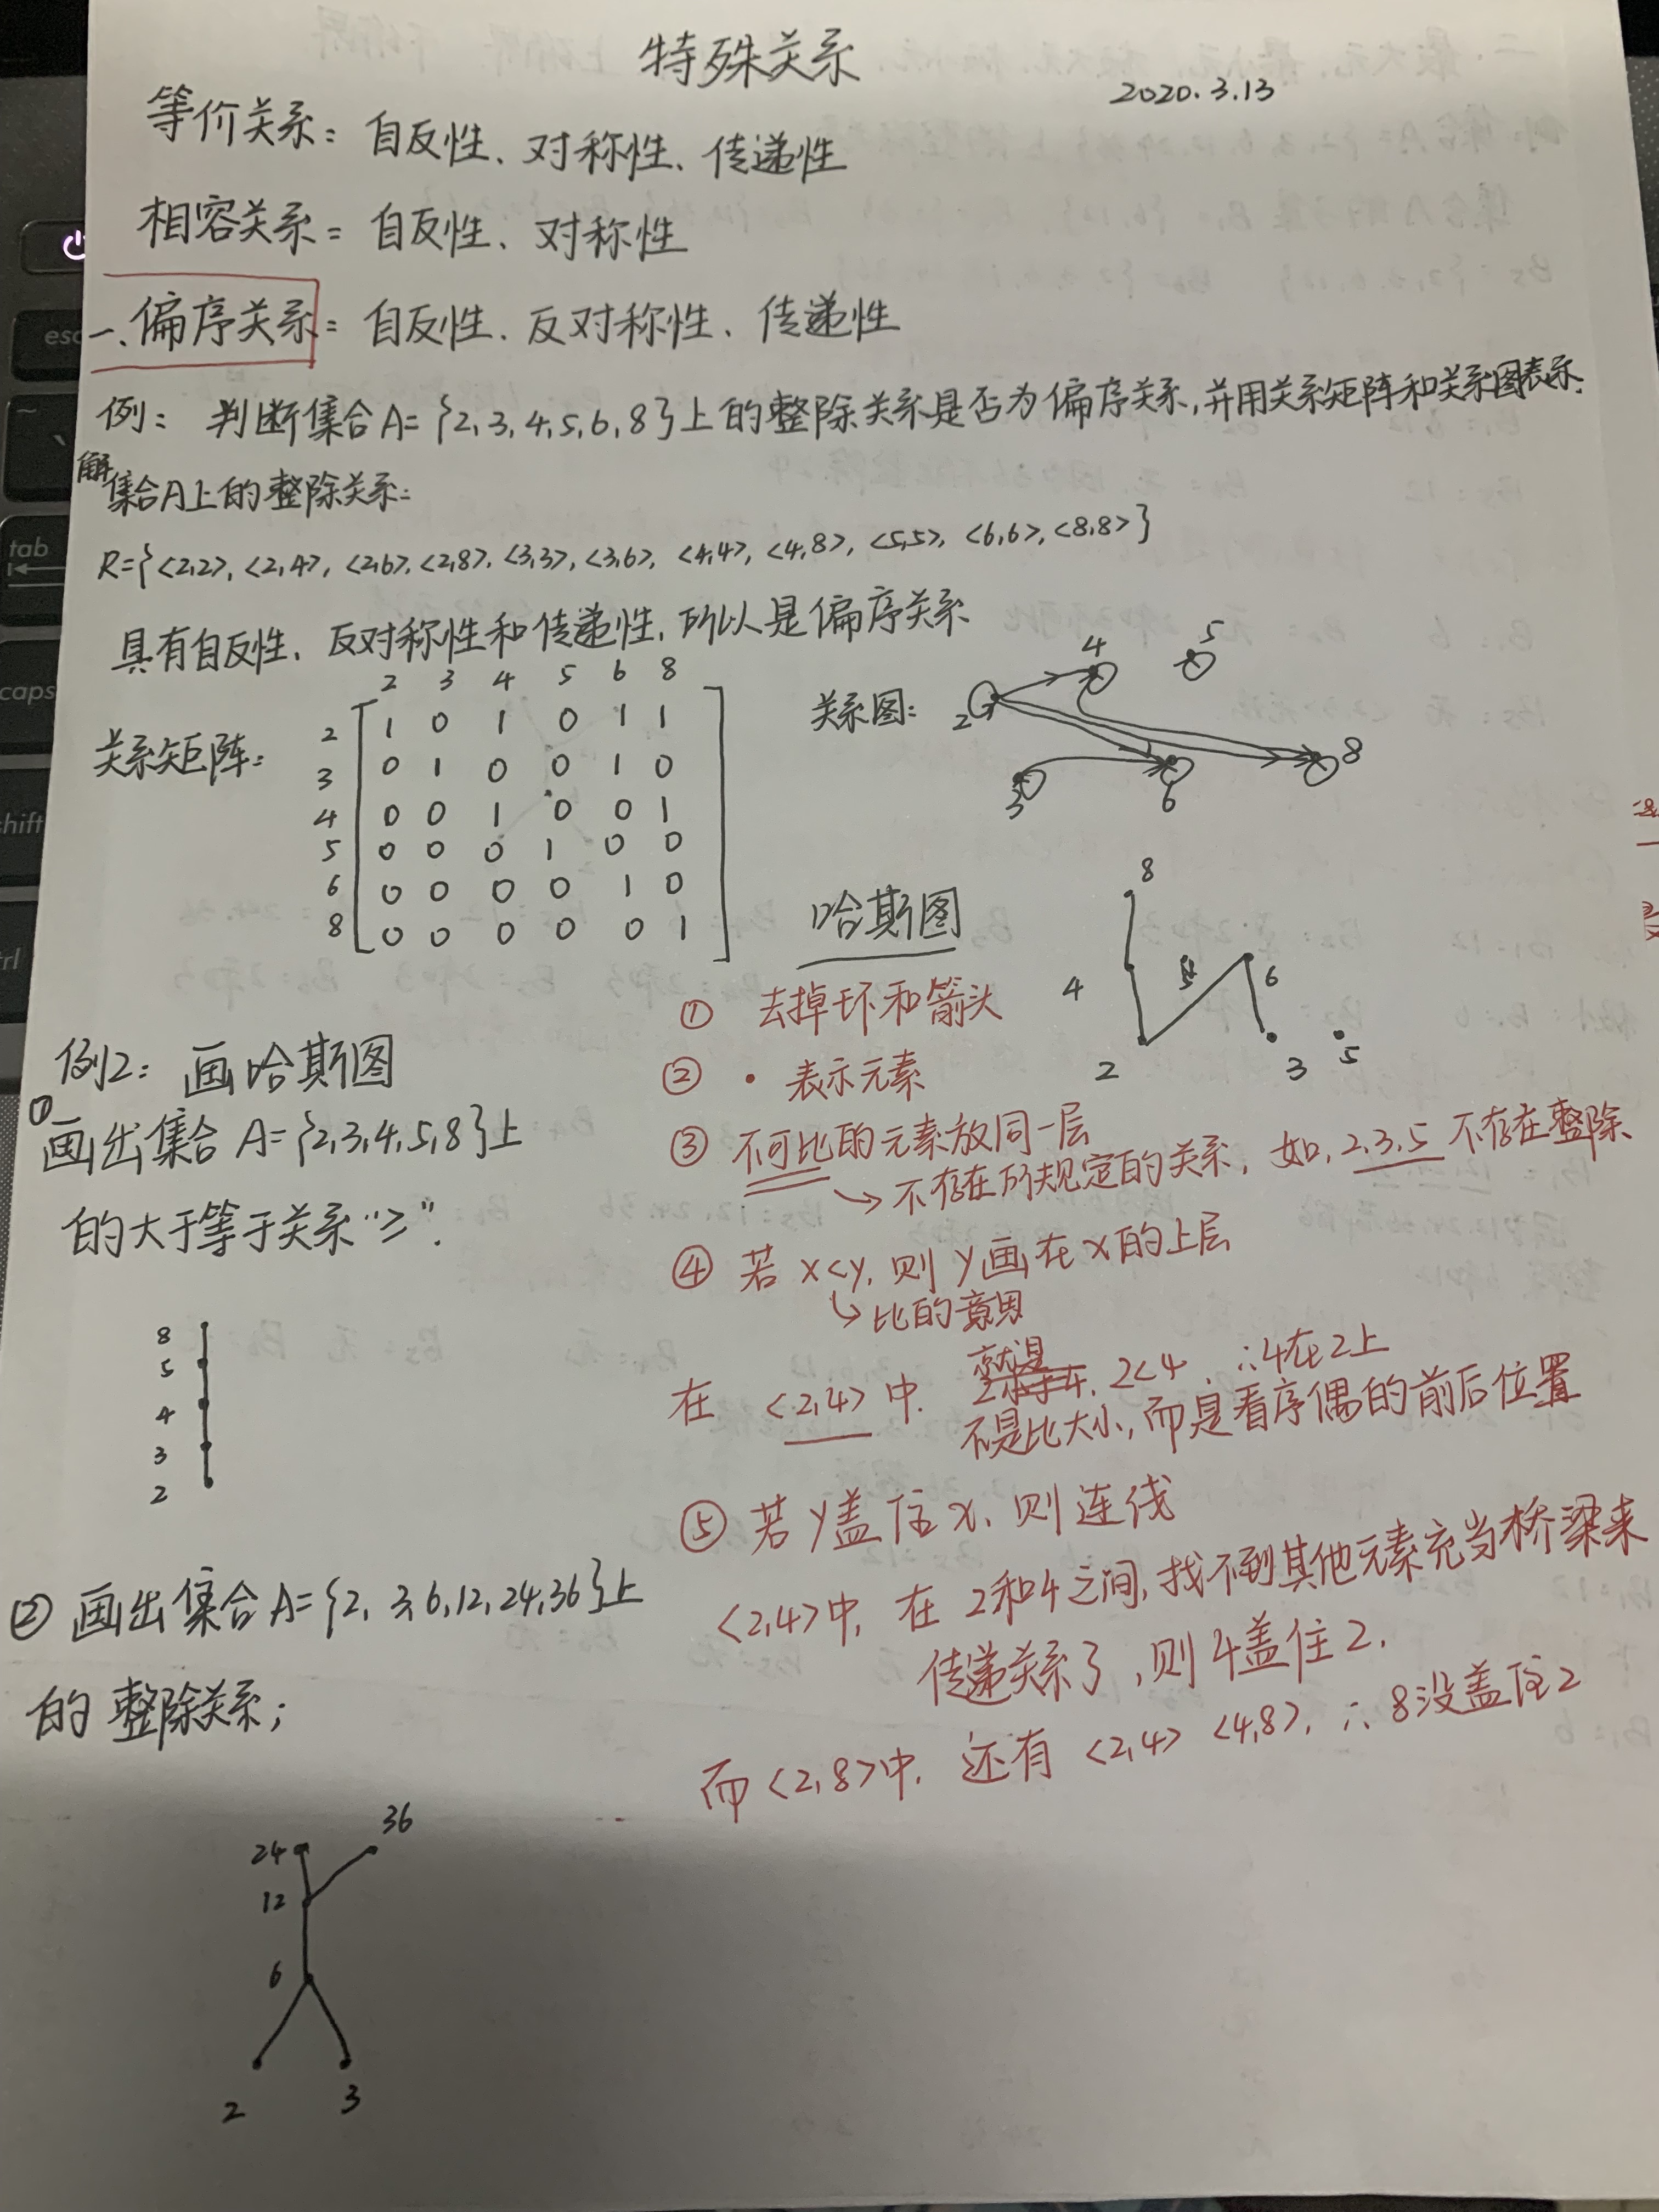 特殊关系
2020.3.13
等价关系: 自反性、对称性、传递性
相容关系: 自反性、对称性
一、偏序关系: 自反性、反对称性、传递性
例: 判断集合A={2,3,4,5,6,8}上的整除关系是否为偏序关系,并用关系矩阵和关系图表示.
解
集合A上的整除关系:
R={<2,2>, <2,4>, <2,6>, <2,8>, <3,3>, <3,6>, <4,4>, <4,8>, <5,5>, <6,6>, <8,8>}
具有自反性、反对称性和传递性,所以是偏序关系
关系矩阵:
2 3 4 5 6 8
2 1 0 1 0 1 1
3 0 1 0 0 1 0
4 0 0 1 0 0 1
5 0 0 0 1 0 0
6 0 0 0 0 1 0
8 0 0 0 0 0 1
关系图:
4 5
2
8
3 6
哈斯图
8
4 6
2 3 5
① 去掉环和箭头
② · 表示元素
③ 不可比的元素放同一层
→ 不存在所规定的关系, 如, 2,3,5 不存在整除
④ 若 x<y, 则 y画在x的上层
→ 比的意思
在 <2,4> 中, 2<4, ∴4在2上
不是比大小,而是看序偶的前后位置
⑤ 若y盖住x, 则连线
<2,4>中, 在2和4之间,找不到其他元素充当桥梁来
传递关系了,则4盖住2.
而<2,8>中, 还有 <2,4> <4,8>, ∴8没盖住2
例2: 画哈斯图
① 画出集合 A={2,3,4,5,8}上
的大于等于关系"≥".
8
5
4
3
2
② 画出集合A={2,3,6,12,24,36}上
的整除关系;
36
24
12
6
2 3